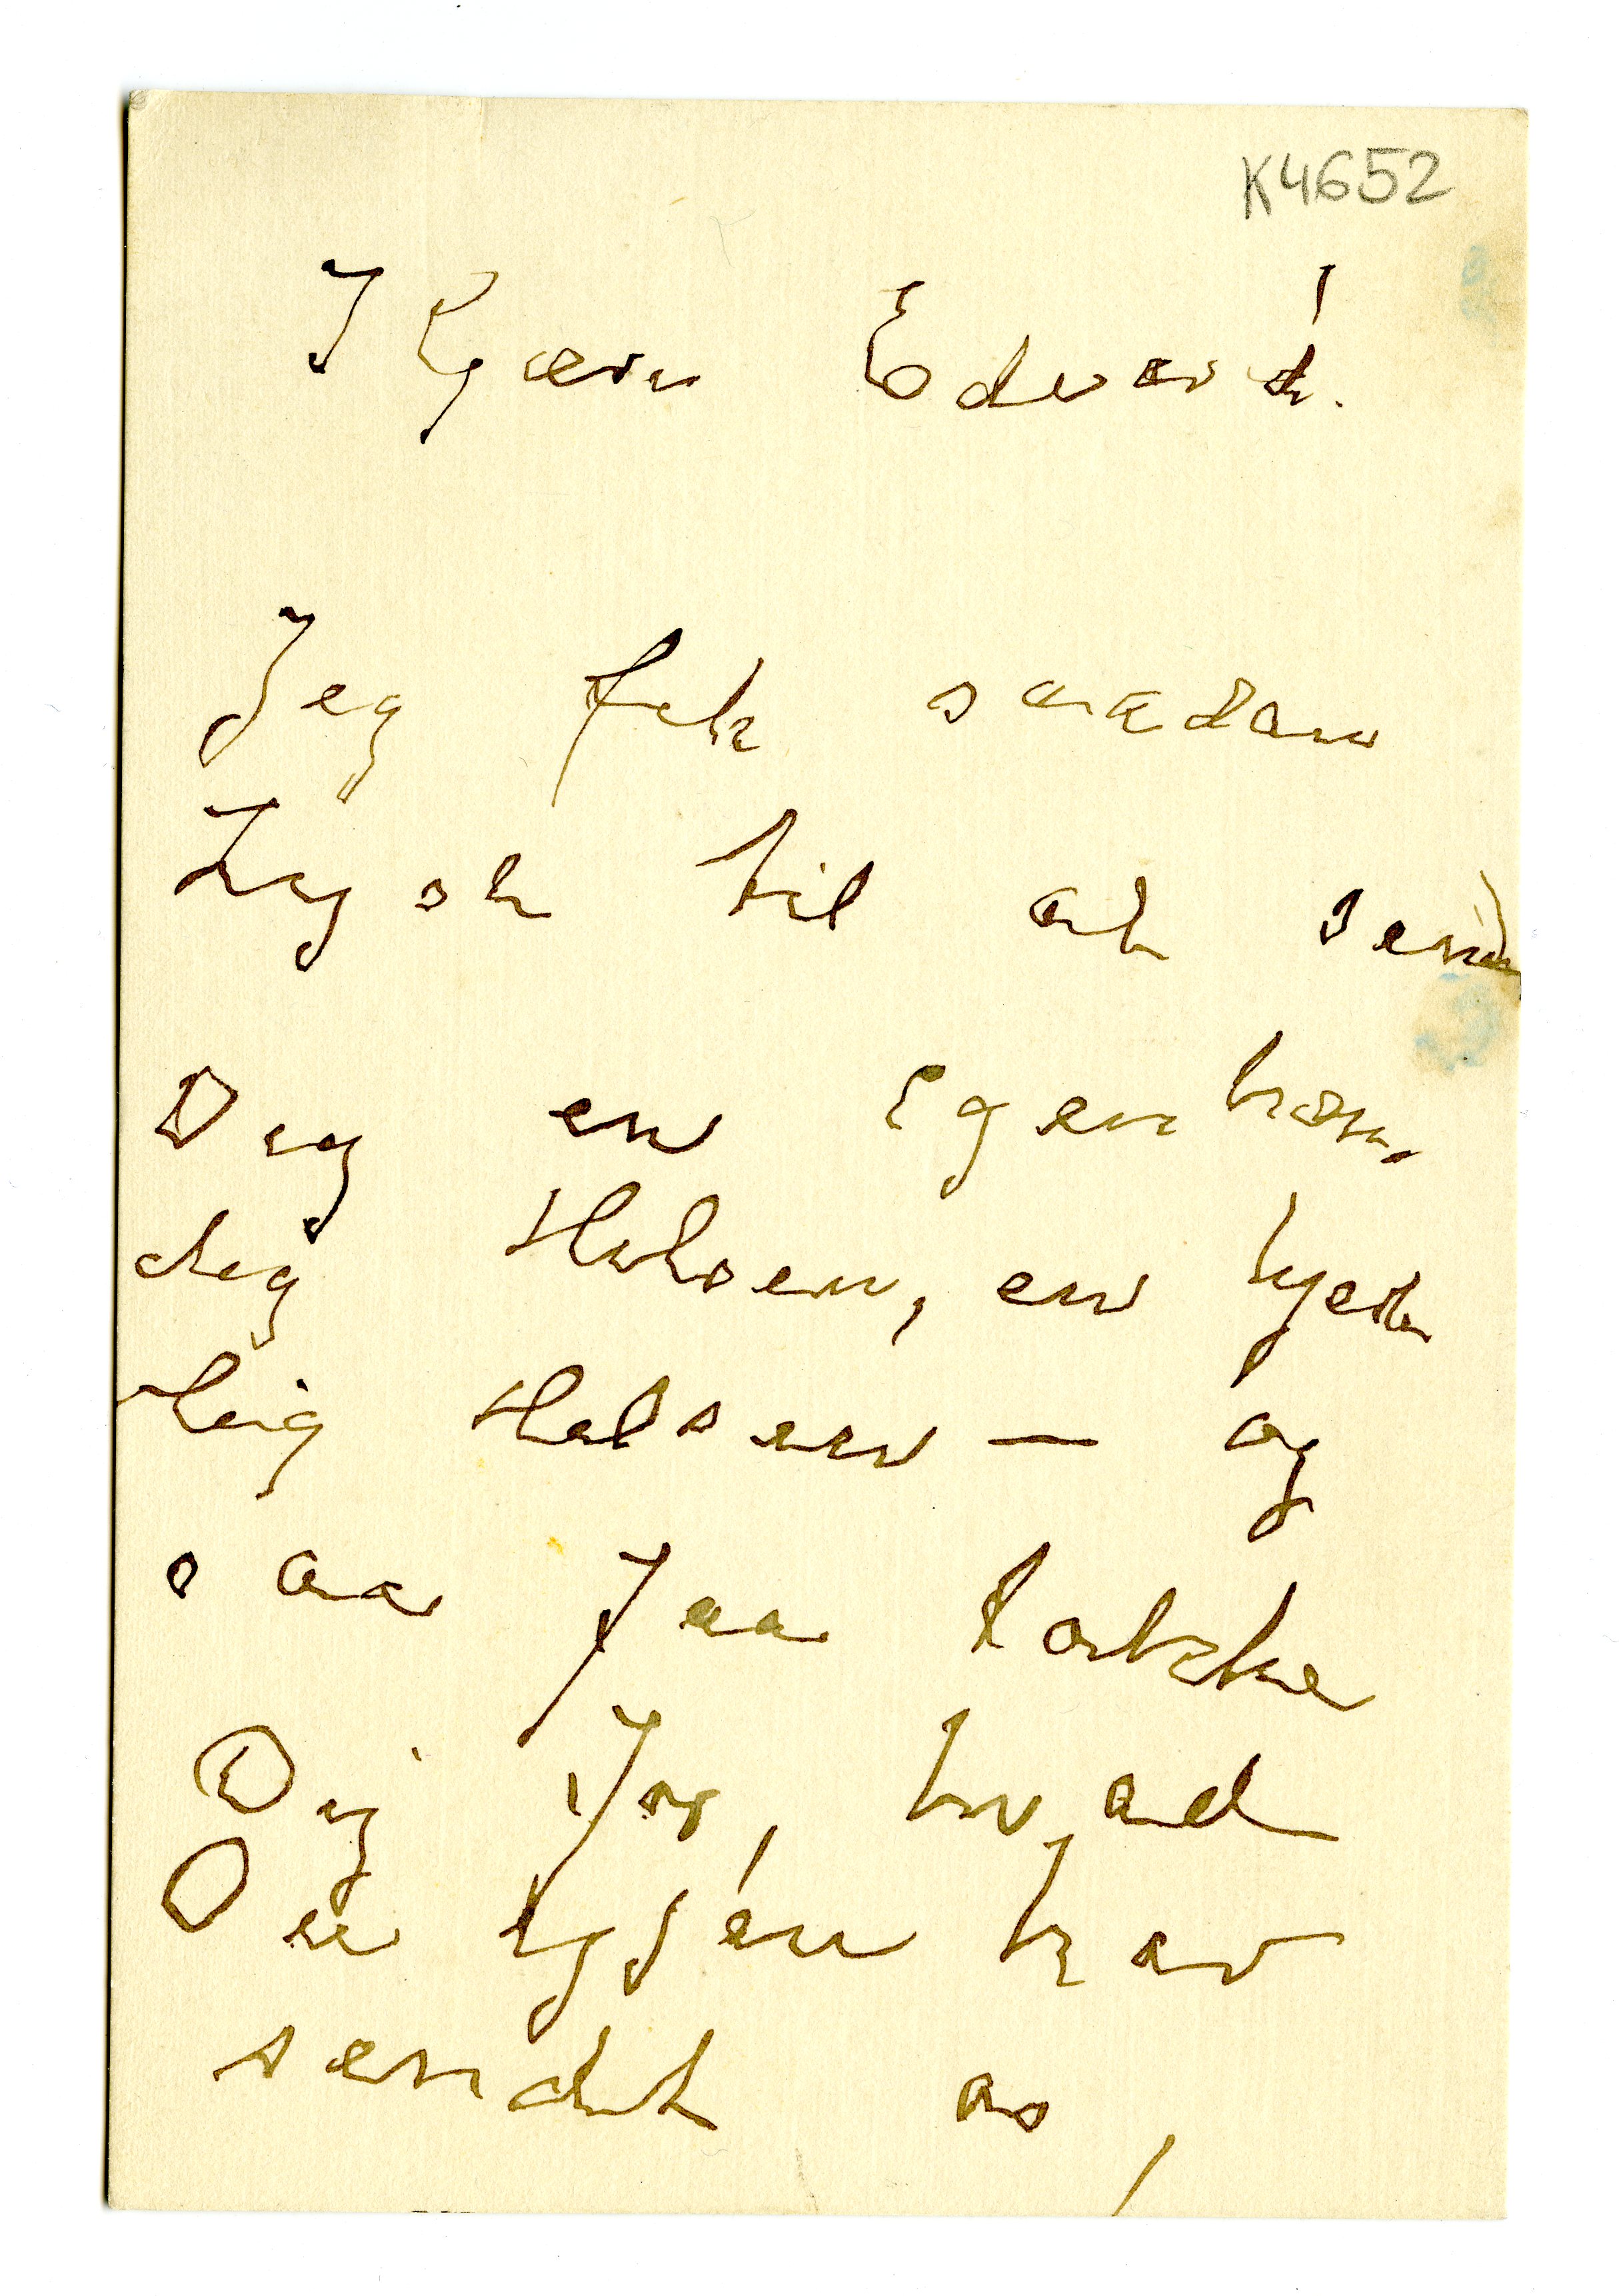 K4652
Kjære Edvard!
Jeg fik saadan
Lyst til at sende
Dig en egenhæn-
dig Hilsen, en hjerte
lig Hilsen — og
saa faa takke
Dig for, hvad
Du igjen har
sendt os,